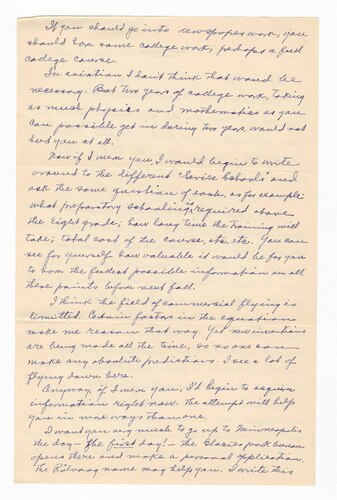 If you should go into newspaper work, you
should have some college work; perhaps a full
college course.
In aviation I don't think that would be
necessary. But two years of college work, taking
as much physics and mathematics as you
can possibly get in during two years, would not
hurt you at all.
Now if I were you, I would begin to write
around to the different "Service Schools" and
ask the same question of each, as for example:
what preparatory schooling is required above
the Eight grade; how long time the training will
take; total cost of the course, etc, etc. You can
see for yourself how valuable it would be for you
to have the fullest possible information on all
these points before next fall.
I think the field of commercial flying is
limitted. Certain factors in the equation
make me reason that way. Yet new inventions
are being made all the time, so no one can
make any absolute predictions. I see a lot of
flying down here.
Anyway, if I were you, I'd begin to acquire
information right now. The attempt will help
you in more ways than one.
I want you very much to go up to Minneapolis
the day - the first day! - the Glacier park bureau
opens there and make a personal application.
The Rölvaag name may help you. I write this